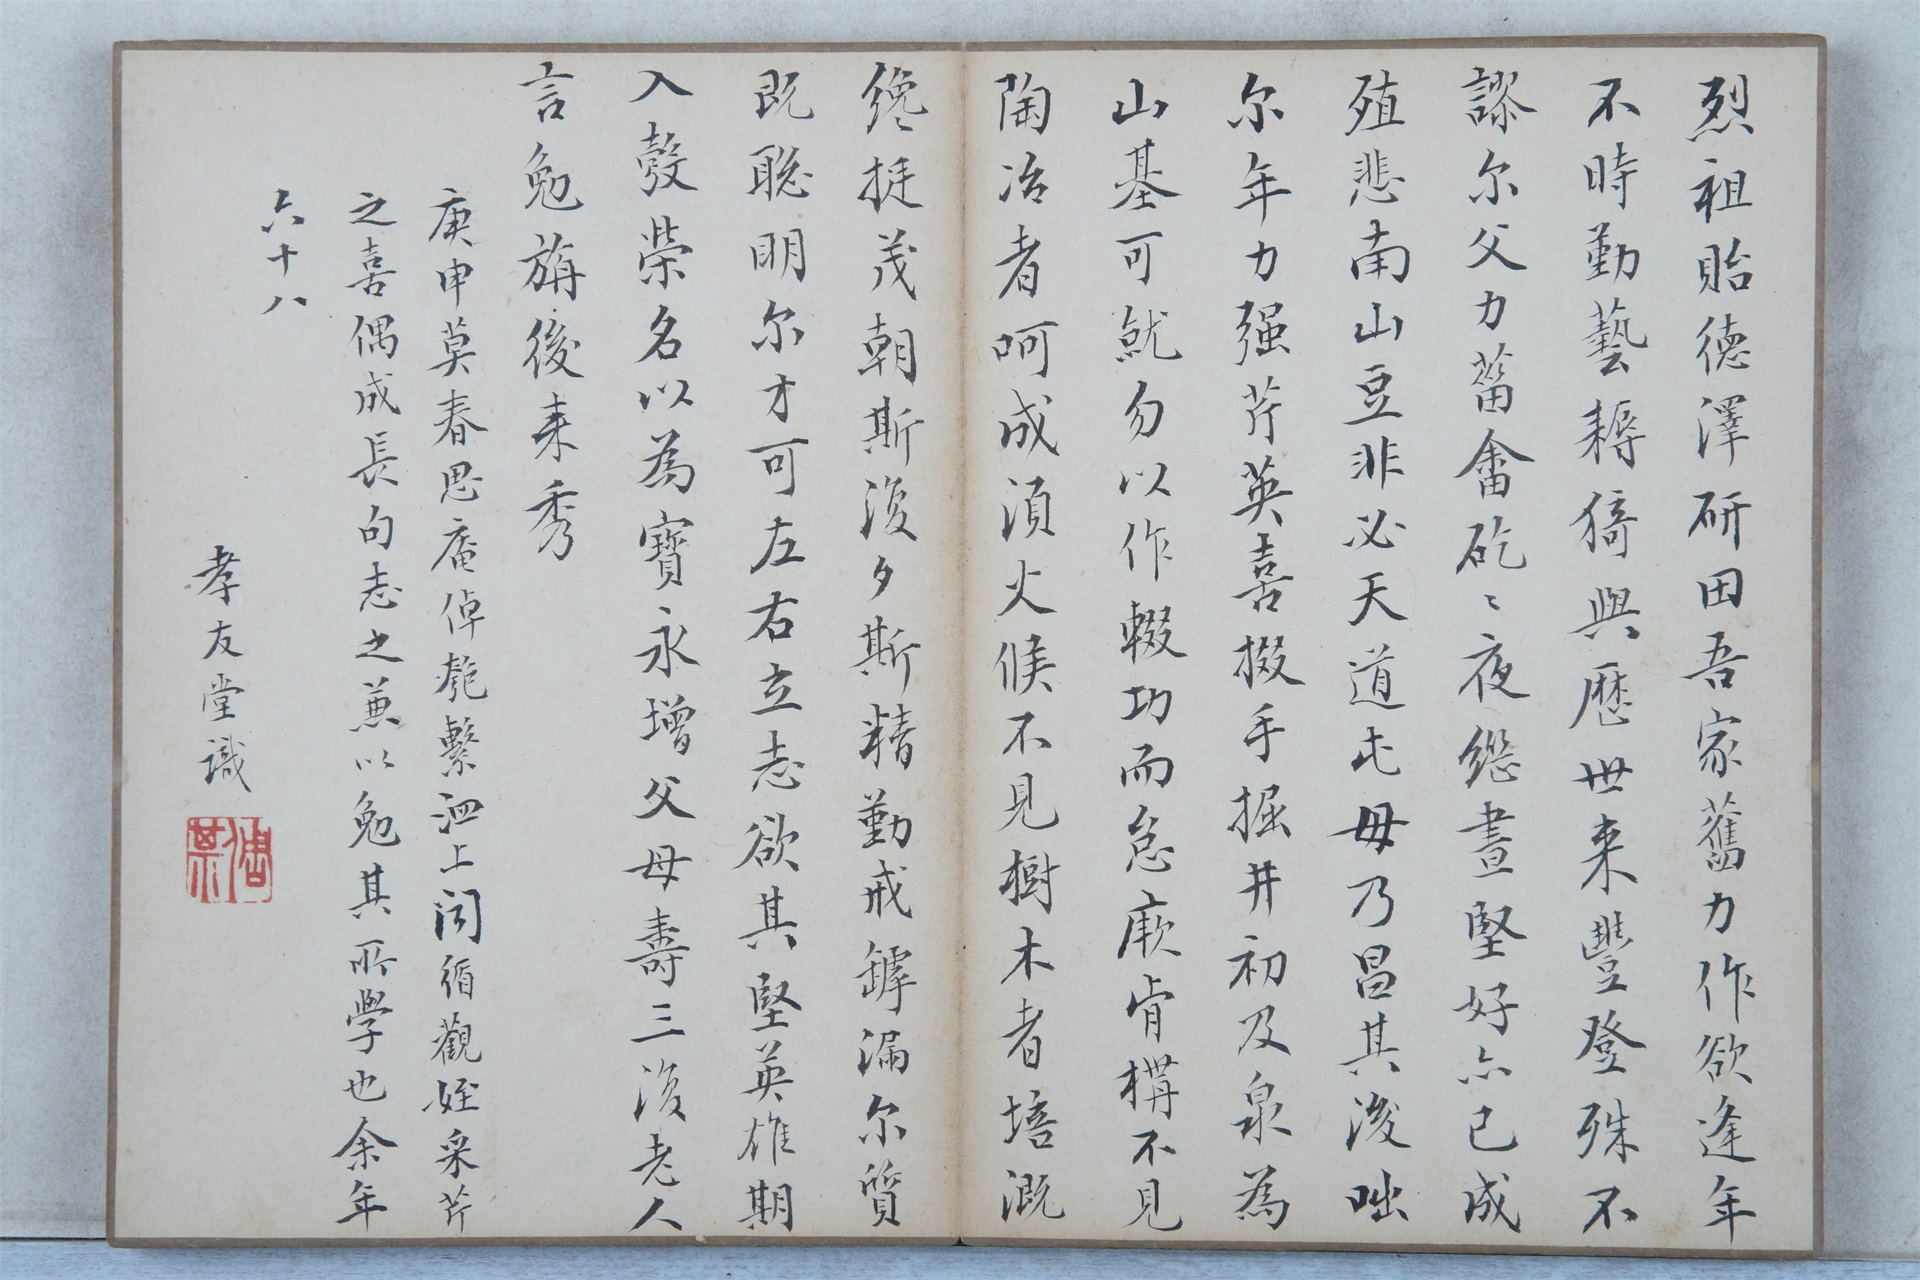 烈祖貽德澤研田吾家舊力作欲逢年
不時勤藝耨猗與歷世来豐登殊不
謬尔父力菑畬矻〻夜繼晝堅好亦已成
殖悲南山豆非必天道屯毋乃昌其後咄
尔年力强芹英喜掇手掘井初及泉為
山基可就勿以作輟功而怠厥肯構不見
陶冶者呵成須火候不見樹木者培溉
纔挺茂朝斯復夕斯精勤戒罅漏尔質
既聡明尔才可左右立志欲其堅英雄期
入彀榮名以為寶永增父母壽三復老人
言勉旃後来秀
庚申莫春思庵倬甐繫泗上闻循觀姪采芹
之喜偶成長句志之兼以勉其所學也余年
六十八
孝友堂識